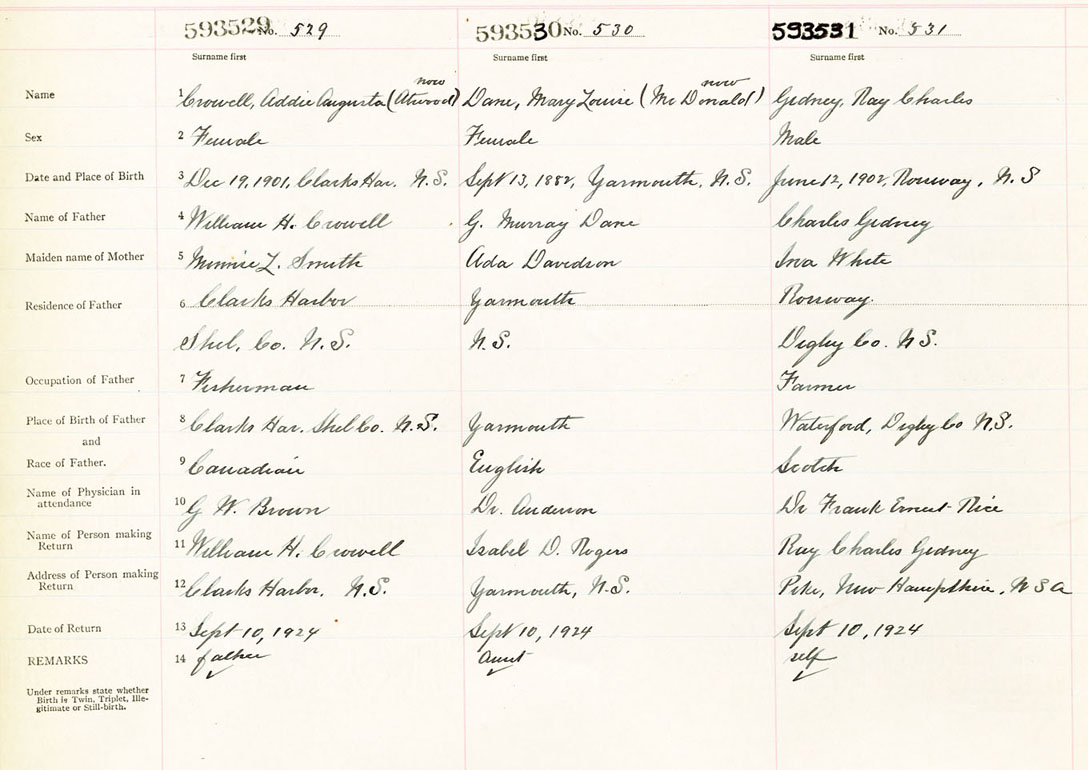 593529 No. 529 593530 No. 530 593531 No. 531
Surname first Surname first Surname first
now now
Name 1 Crowell, Addie Augusta (Atwood) Dane, Mary Louise (McDonald) Gidney, Ray Charles
Sex 2 Female Female Male
Date and Place of Birth 3 Dec 19, 1901, Clarks Har. N.S. Sept 13, 1882, Yarmouth, N.S. June 12, 1902, Rossway, N.S
Name of Father 4 William H. Crowell G. Murray Dane Charles Gidney
Maiden name of Mother 5 Minnie L. Smith Ada Davidson Iva White
Residence of Father 6 Clarks Harbor Yarmouth Rossway.
Shel. Co. N.S. N.S. Digby Co. N S.
Occupation of Father 7 Fisherman Farmer
Place of Birth of Father 8 Clarks Har. Shel Co. N.S. Yarmouth Waterford, Digby Co N.S.
and
Race of Father. 9 Canadian English Scotch
Name of Physician in
attendance 10 G W. Brown Dr. Anderson Dr Frank Ernest Rice
Name of Person making
Return 11 William H. Crowell Isabel D. Rogers Ray Charles Gidney
Address of Person making
Return 12 Clarks Harbor, N.S. Yarmouth, N.S. Pike, New Hampshire, U S A
Date of Return 13 Sept 10, 1924 Sept 10, 1924 Sept 10, 1924
REMARKS 14 father Aunt self
Under remarks state whether
Birth is Twin, Triplet, Ille-
gitimate or Still-birth.